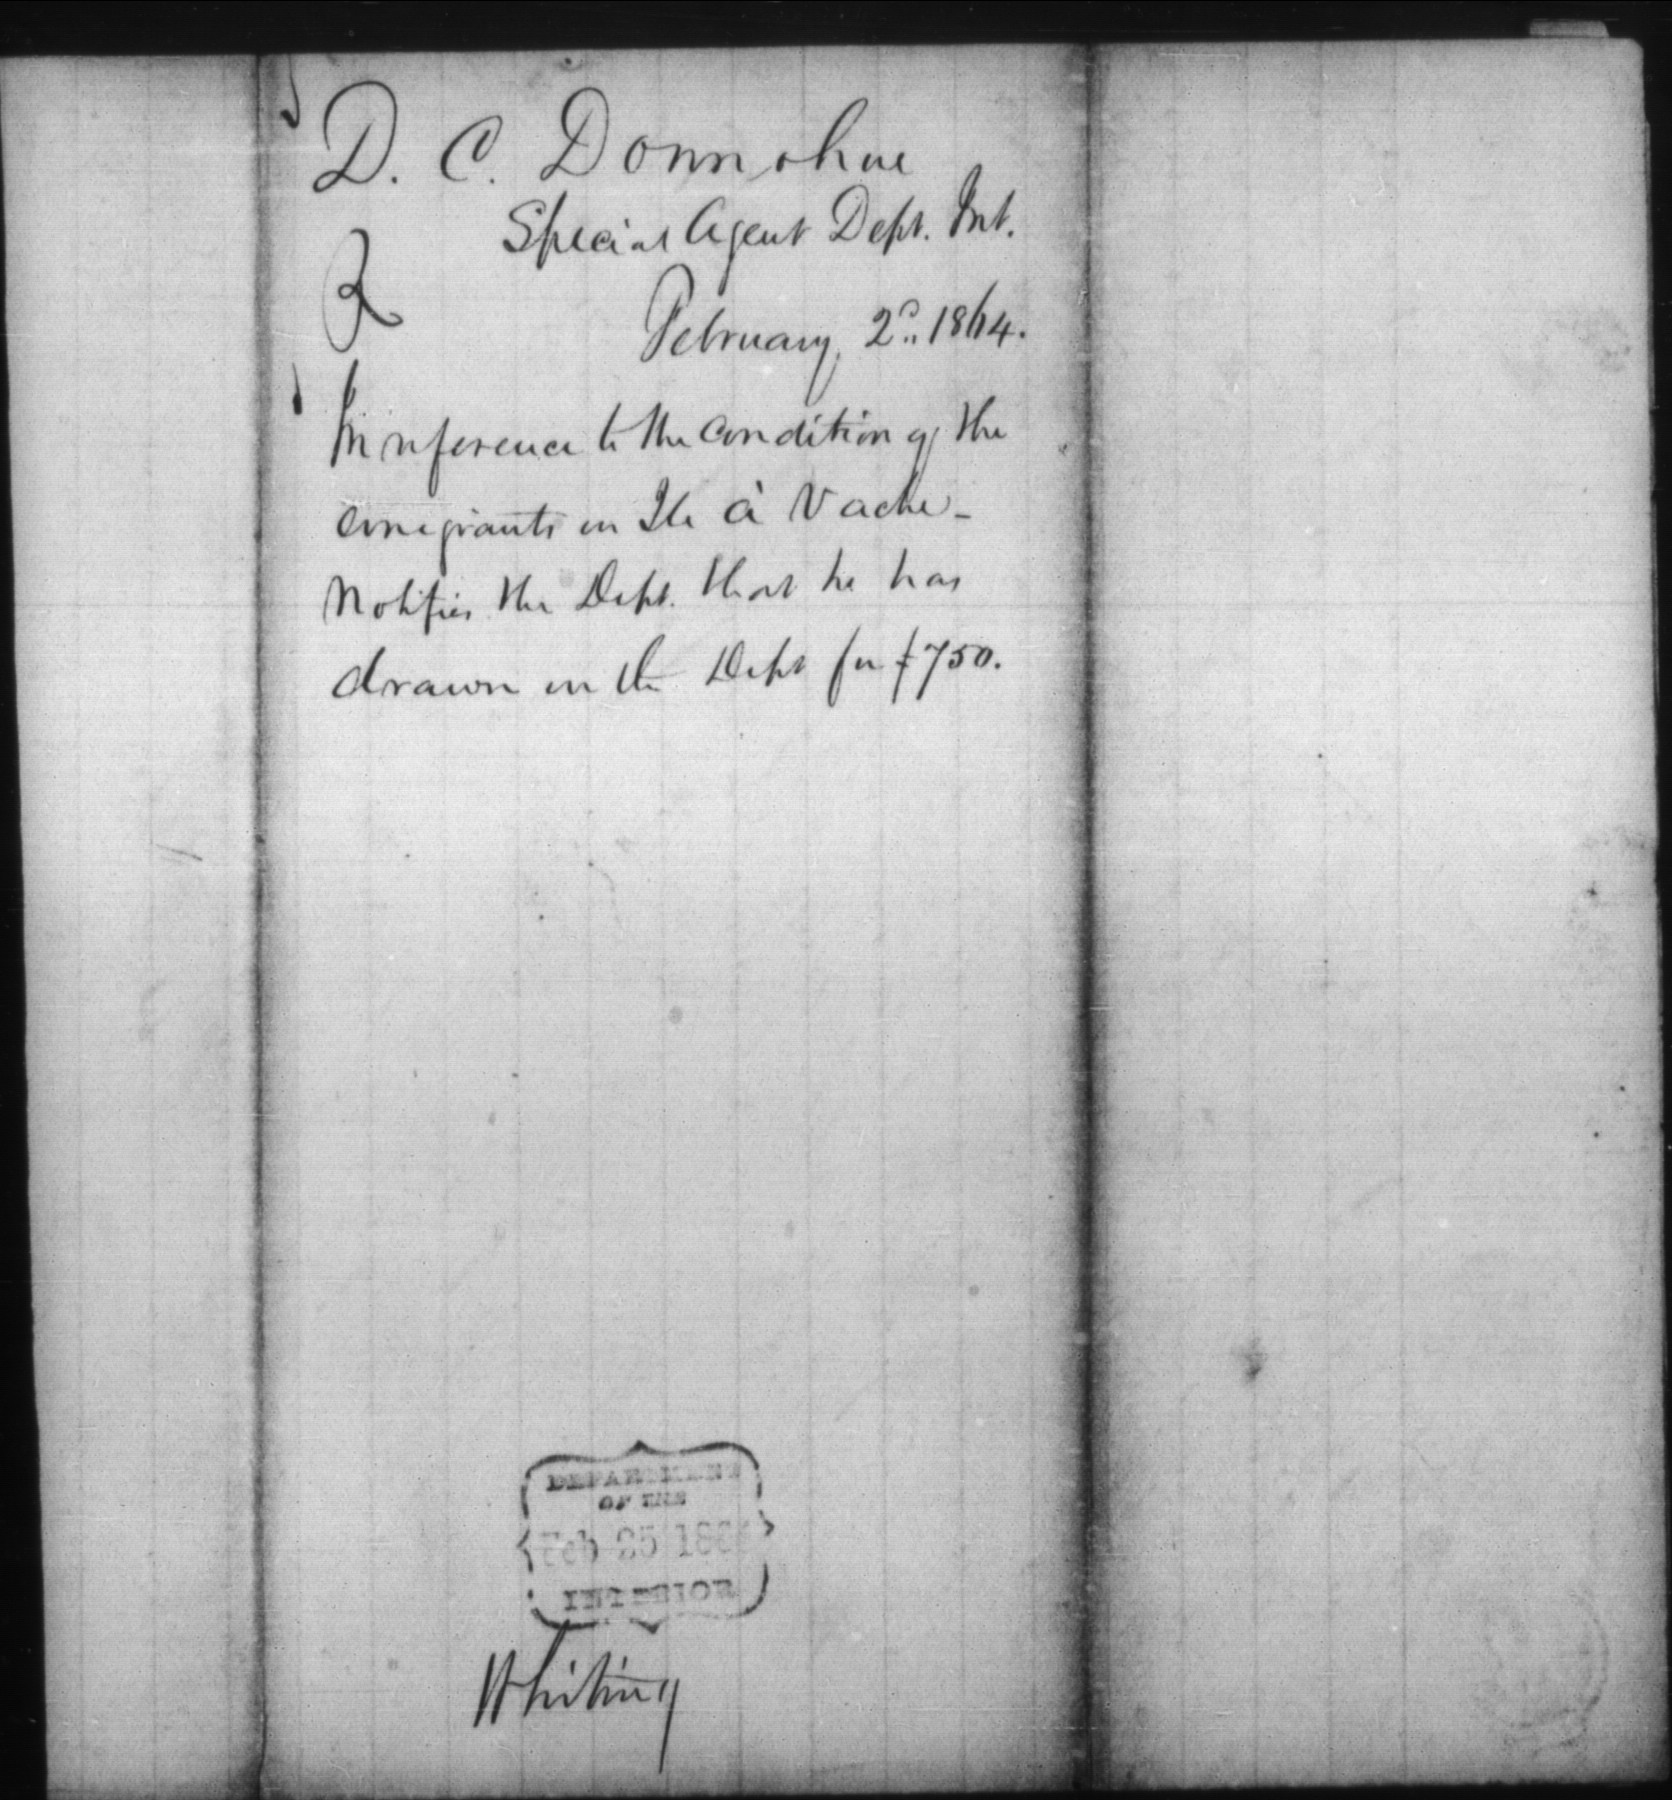 D. C. Donnohue
Special Agent Dept. Int.
February 2d. 1864.
In reference to the condition of the
emigrants on Ile à Vache -
Notifies the Dept. that he has
drawn on the Dept for $750.
DEPARTMENT
OF THE
Feb 25 186
INTERIOR
Whiting